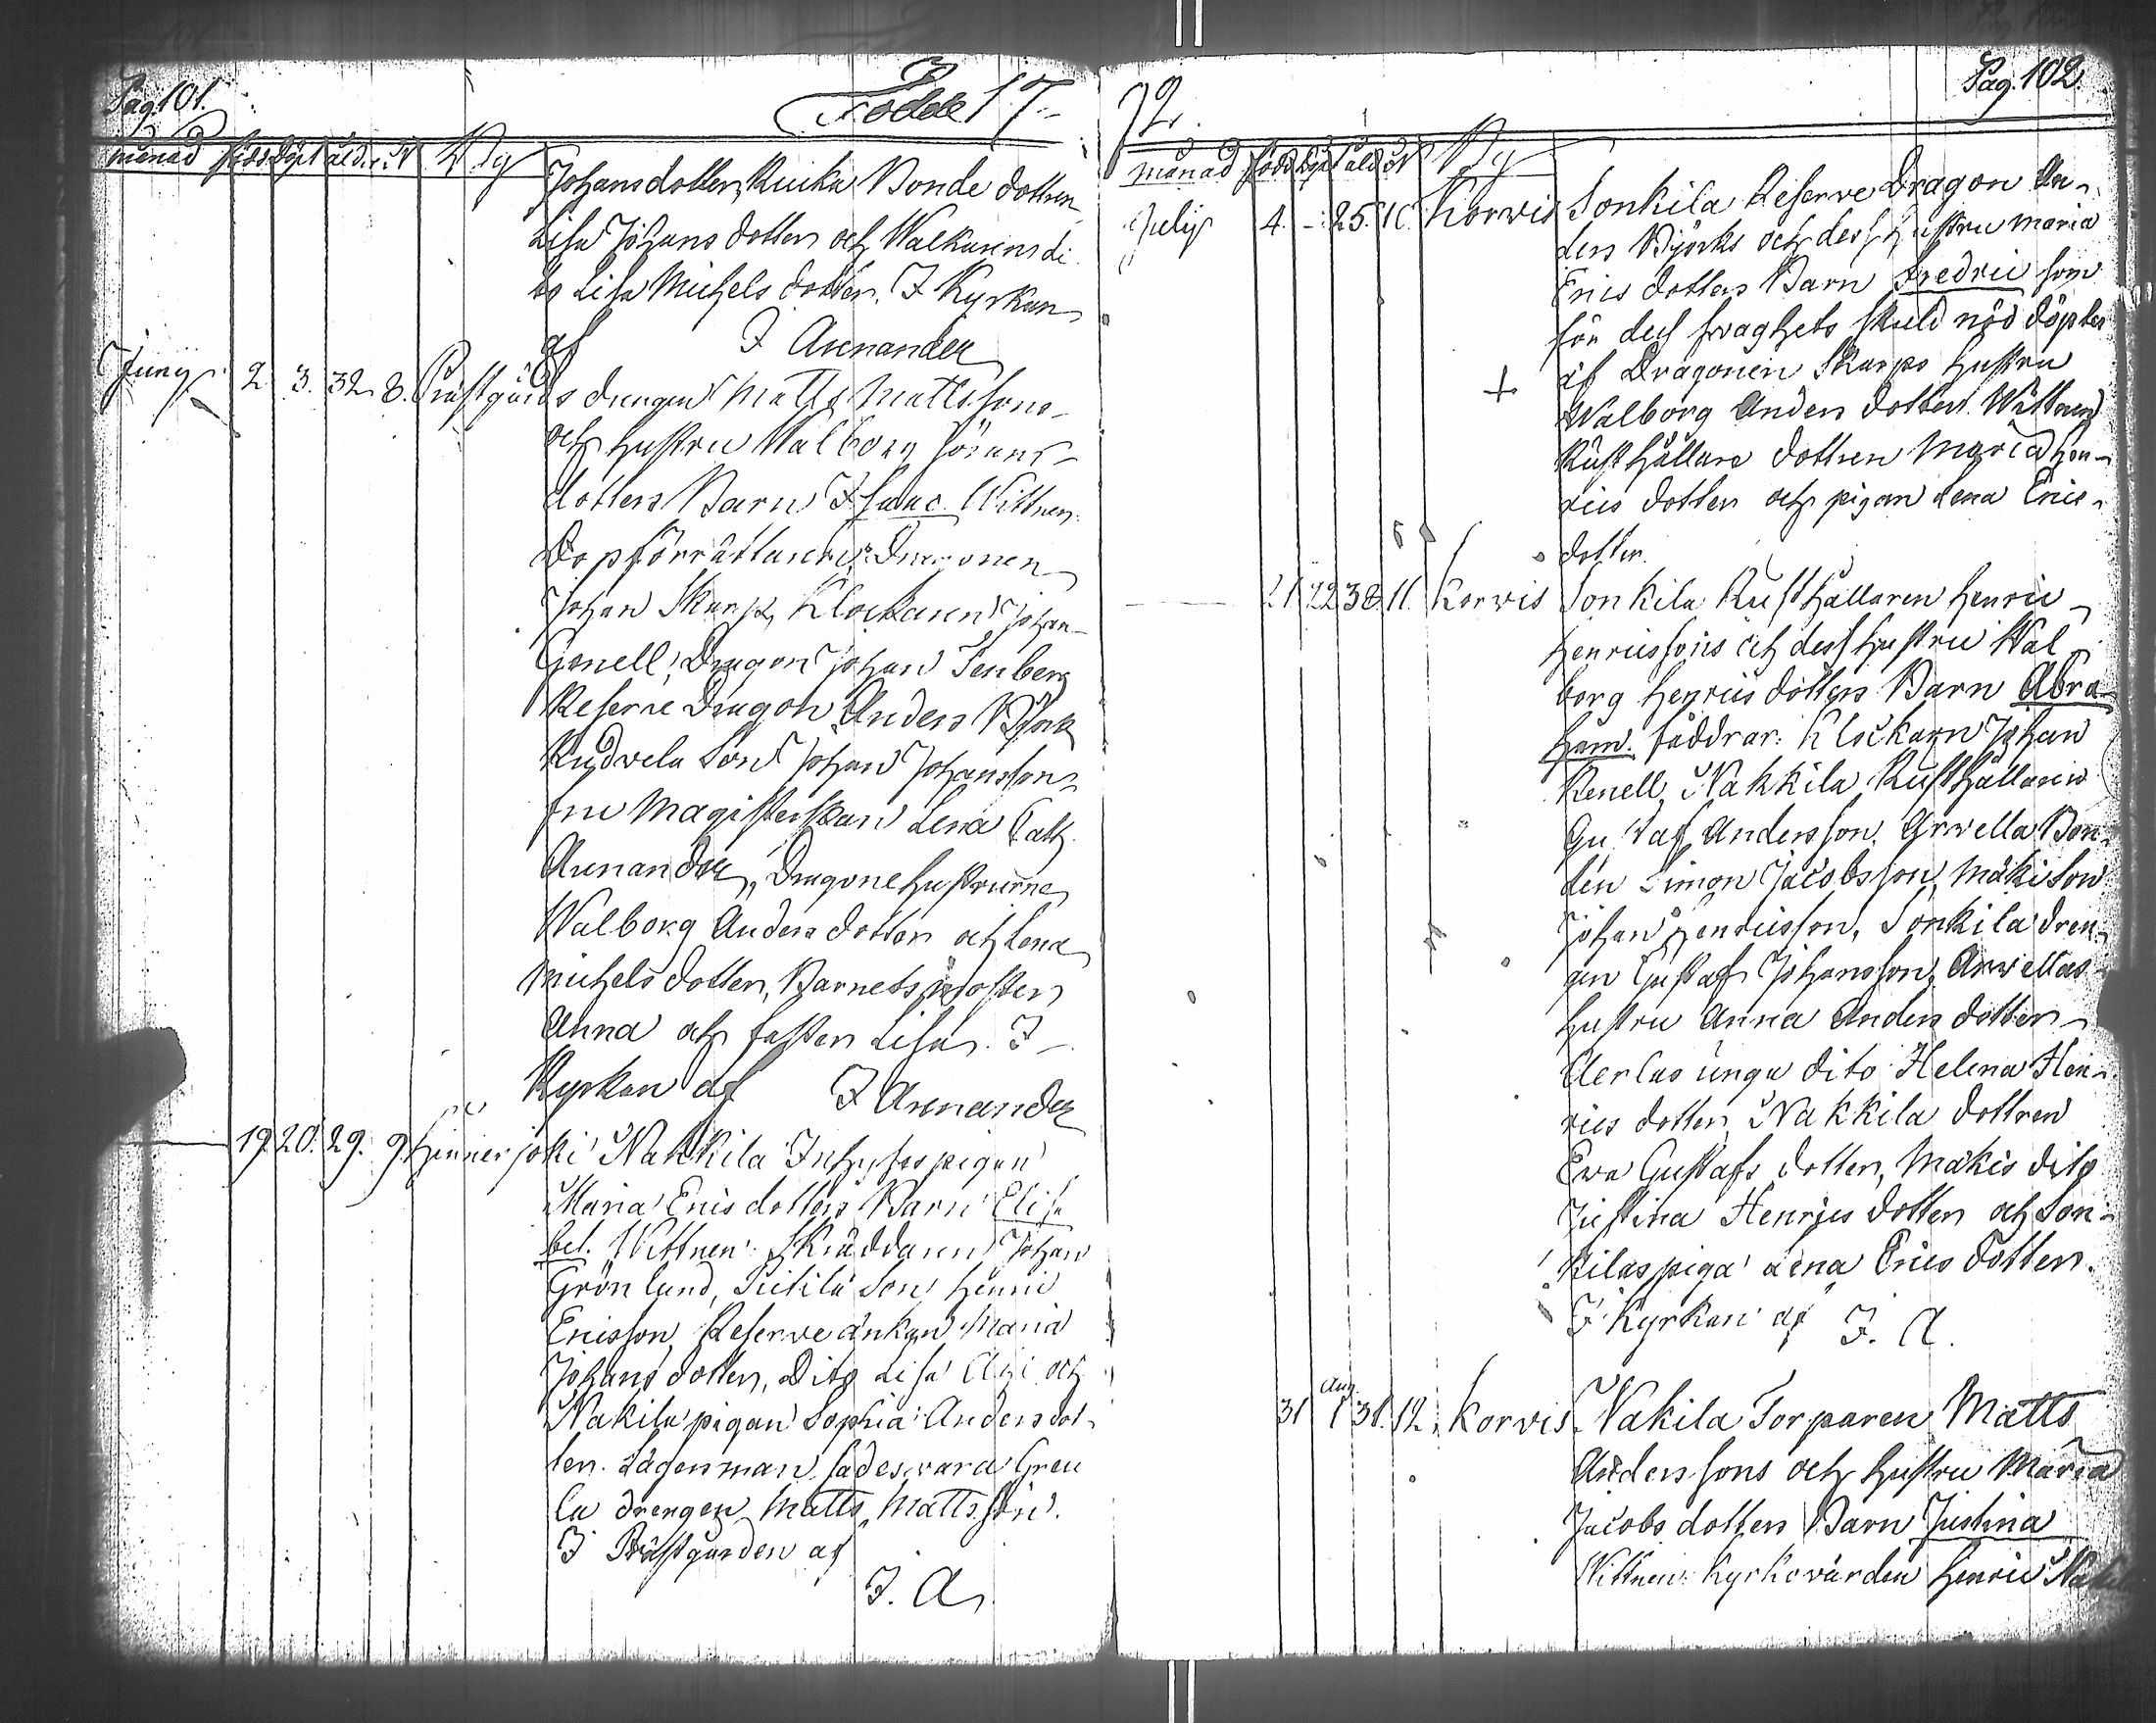 Pag. 101.
Födde 17
månad född döpt ålder N By
Johansdotter, Kuika Bonde dottren
Lisa Johans dotter och Walkarens di
to Lisa Michels dotter. I Kyrkan
af J Arenander
Juny 2 3. 32 8. Prästgårds drengen Matts Mattssons
och hustru Walborg Jörans
dotters Barn Isaac. Wittnen
Dopförrättaren, Dragonen
Johan Skarp, Klockaren Johan
Gonell, Dragon Johan Tenberg
Reserve Dragon Anders Björk
Rudvela Son Johan Johansson
fru Magisterskan Lena Cath.
Arenander, Dragonehustrurne
Walborg Anders dotter och Lena
Michels dotter, Barnets moster
Anna och faster Lisa. I
Kyrkan af J Arenander
19 20. 29. 9 Hinnerjoki Nakkila Inhyses pigan
Maria Erics dotters Barn Elisa
bet. Wittnen: Skräddaren Johan
Grönlund, Son Henric
Ericsson, Reserve änkan Maria
Johans dotter, Dito Lisa och
Nakila pigan Sophia Andersdot-
ter. Lägersman sades vara Greu
la drengen Matts Mattsson.
I Prästgården af
J. A.
72.
Pag. 102.
månad född döpt åld N By
July 4. - 25. 10. Korvis Sonkila Reserve Dragon An-
ders Björks och dess hustru Maria
Erics dotters Barn Fredric som
för dess svaghets skuld nöd döptes
af Dragonen Skarps hustru
Walborg Anders dotter. Wittnen
Rusthållare dottren Maria Hen-
rics dotter och pigan Lena Erics
dotter.
21 22 38 11. Korvis Sonkila Rusthållaren Henric
Henricssons och dess hustru Wal
borg Henrics dotters Barn Abra-
ham. faddrar: Klockarn Johan
Renell, Nakkila Rusthållaren
Gustaf Andersson, Arvella Bon-
den Simon Jacobsson, Mäki Son
Johan Henricsson, Sonkila dren-
gen Gustaf Johansson, Arvellas
hustru Anna Anders dotter
Aerlas unga dito Helena Hen-
rics dotter, Nakkila dottren
Eva Gustafs dotter, Mäkis dito
Justina Henrics dotter och Son-
kilas piga Lena Erics dotter.
I Kyrkan af J. A.
31 Aug. 1 31. 12. Korvis Nakila Torparen Matts
Anderssons och hustru Maria
Jacobs dotters Barn Justina
Wittnen: Kyrkovärden Henric